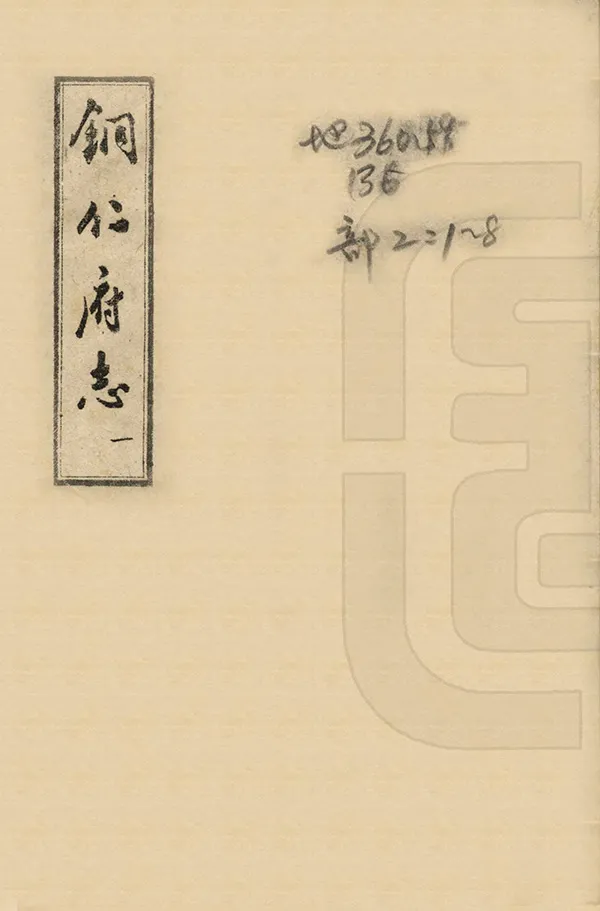 銅仁府志
一
地360.59
136
部2:1~8